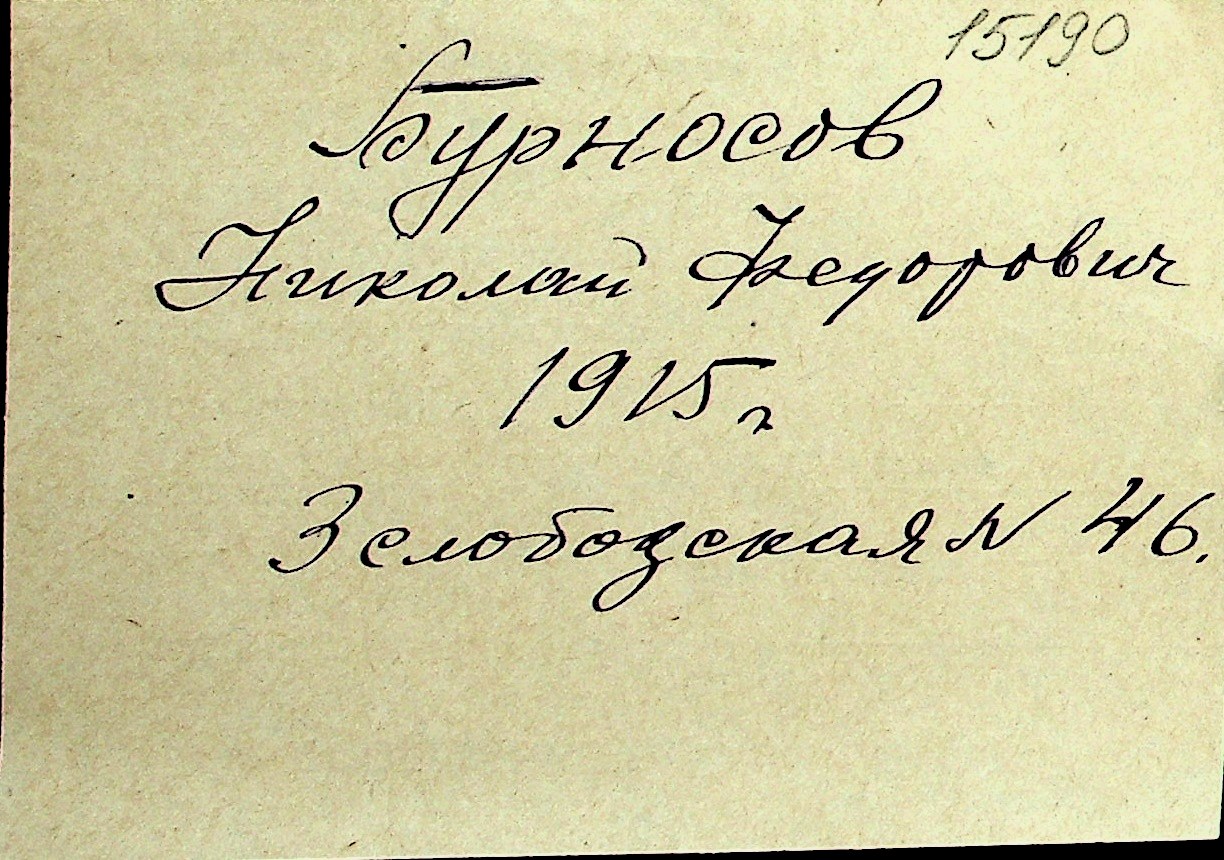 15190
Бурносов
Николай Федорович
1915 г
З слободская N 46.